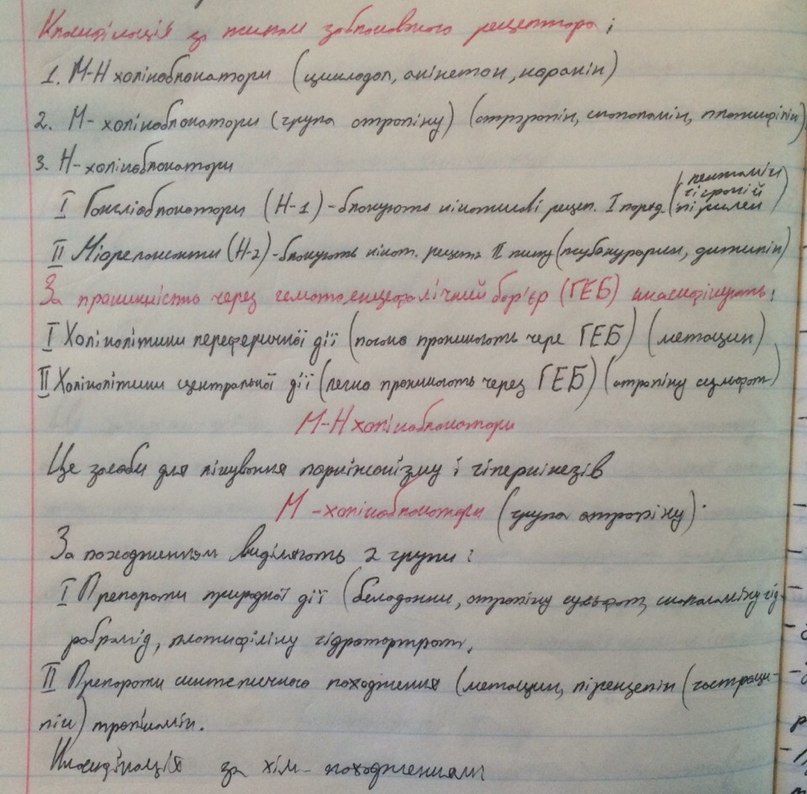 Класифікація за типом заблокованого рецептора:
1. М-Н холіноблокатори (циклодол, акінетон, норакін)
2. М- холіноблокатори (група атропіну) (атропін, скополамін, платифілін)
3. Н-холіноблокатори
I Гангліоблокатори (Н-1) - блокують нікотинові рецеп. I поряд. (пентамін гігроній пірилен)
II Міорелаксанти (Н-2) - блокують нікот. рецепт II типу (тубокурарин, дитилін)
За проникністю через гематоенцефалічний бар'єр (ГЕБ) класифікують:
I Холінолітики переферичної дії (погано проникають чере ГЕБ) (метацин)
II Холінолітики центральної дії (легко проникають через ГЕБ) (атропіну сульфат)
М-Н холіноблокатори
Це засоби для лікування паркінсонізму і гіперкінезів
М -холіноблокатори (група атропіну).
За походженням виділяють 2 групи:
I Препарати природної дії (беладонни, атропіну сульфат, скополаміну гід
робромід, платифіліну гідротартрат,
II Препарати синтетичного походження (метацин, пірензепін (гастроци-
пін) тропікамін.
Класифікація за хім- походженням